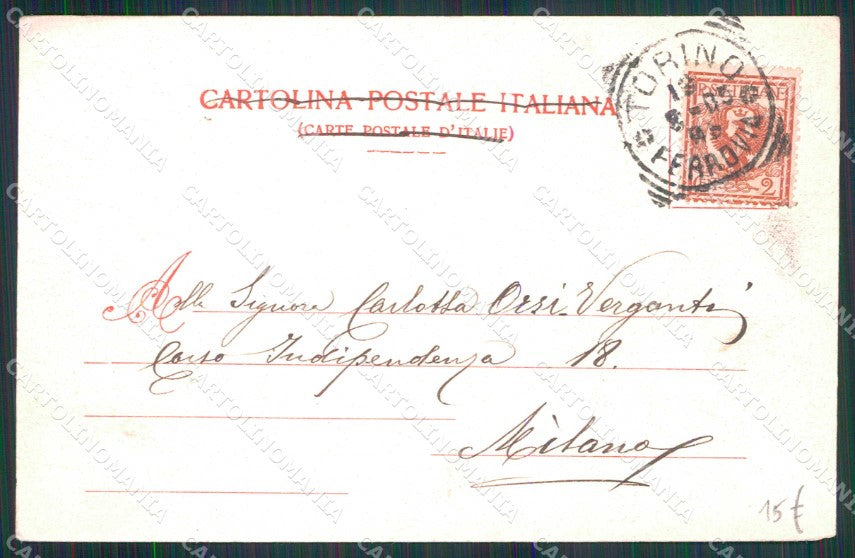 CARTOLINA POSTALE ITALIANA
(CARTE POSTALE D'ITALIE)
TORINO
FERROVIA
2
Alla Signora Carlotta Orsi-Verganti
Corso Indipendenza 18.
Milano
15€
CARTOLINOMANIA